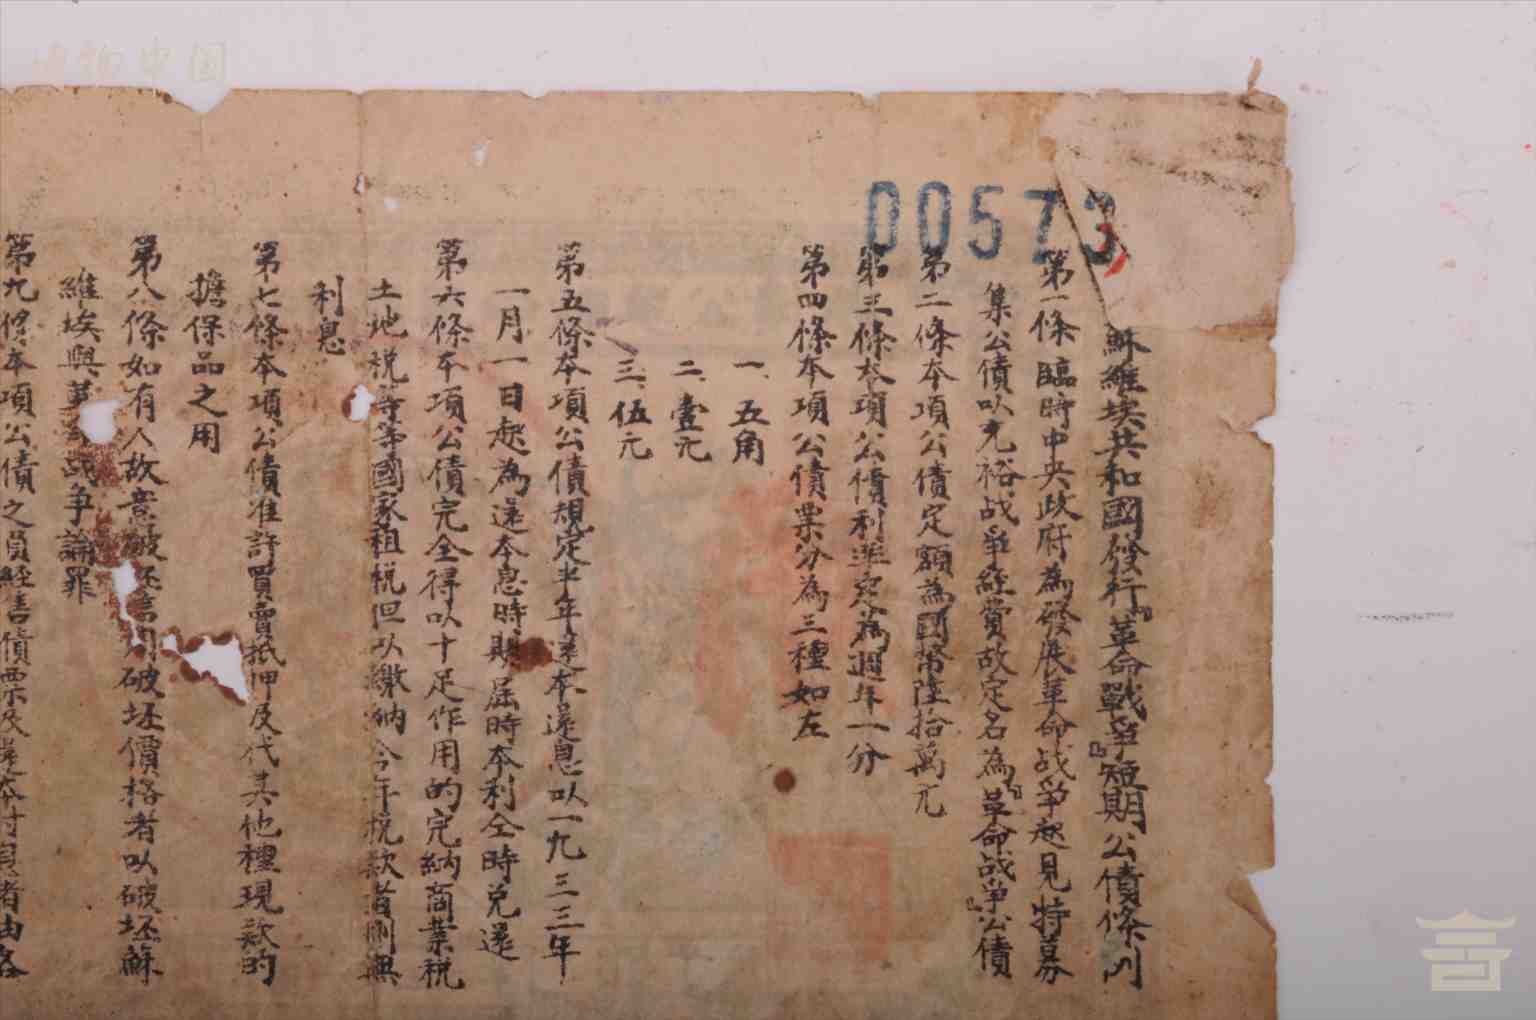 博物中国
00573
蘇維埃共和國發行『革命戰爭』短期公債條例
第一條臨時中央政府為發展革命战爭起見特募
集公債以充裕战爭經費故定名為『革命战爭公債』
第二條本項公債定額為國幣陸拾萬元
第三條本項公債利率定為週年一分
第四條本項公債票分為三種如左
一、五角
二、壹元
三、伍元
第五條本項公債規定半年還本還息以一九三三年
一月一日起為還本息時期屆時本利仝時兌還
第六條本項公債完全得以十足作用的完納商業税
土地税等等國家租税但以繳納今年税款者則無
利息
第七條本項公債准許買賣抵押及代其他種現款的
擔保品之用
第八條如有人故意破坯信用破坯價格者以破坯蘇
維埃與革命战争論罪
第九條本項公債之經售債票及還本付息者由各